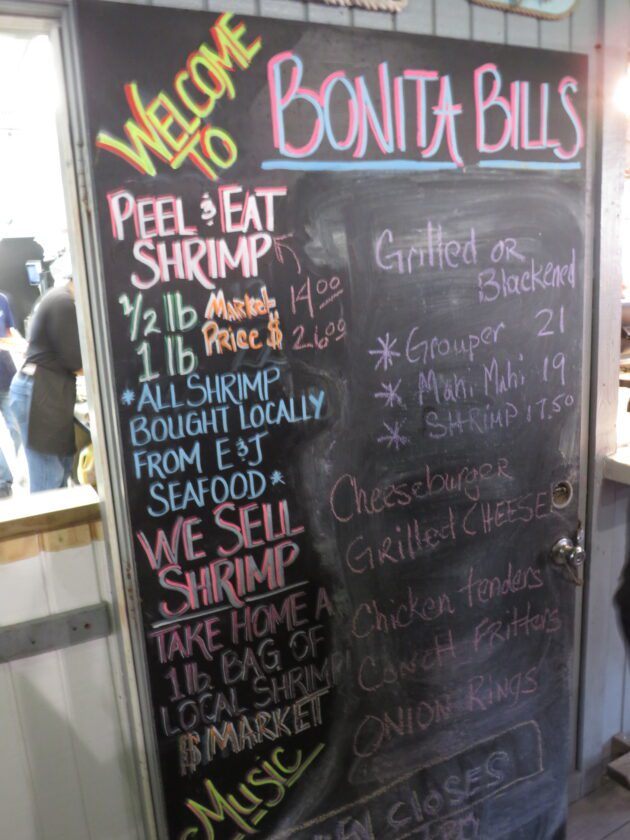 WELCOME
TO
BONITA BILLS
PEEL & EAT
SHRIMP
1/2 lb Market 14.00
1 lb Price $ 26.00
*ALL SHRIMP
BOUGHT LOCALLY
FROM E&J
SEAFOOD*
WE SELL
SHRIMP
TAKE HOME A
1 lb. BAG OF
LOCAL SHRIMP
$ MARKET
Music
Grilled OR
Blackened
* Grouper 21
* Mahi Mahi 19
* SHRIMP 17.50
Cheeseburger
Grilled CHEESE
Chicken tenders
Conch Fritters
ONION RINGS
CLOSES